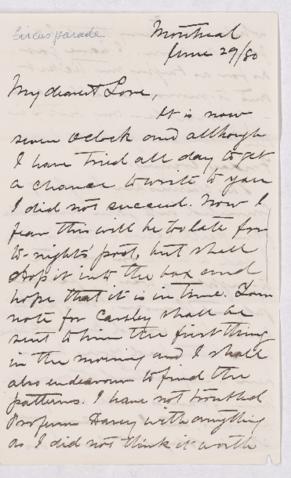 Circus parade
Montreal
June 29/80
My dearest Love,
It is now
seven oclock and although
I have tried all day to get
a chance to write to you
I did not succeed. Now I
fear this will be too late for
to-night's post, but shall
drop it into the box and
hope that it is in time. Your
note for Carsley shall be
sent to him the first thing
in the morning and I shall
also endeavour to find the
patterns. I have not troubled
Professor Harvey with anything
as I did not think it worth